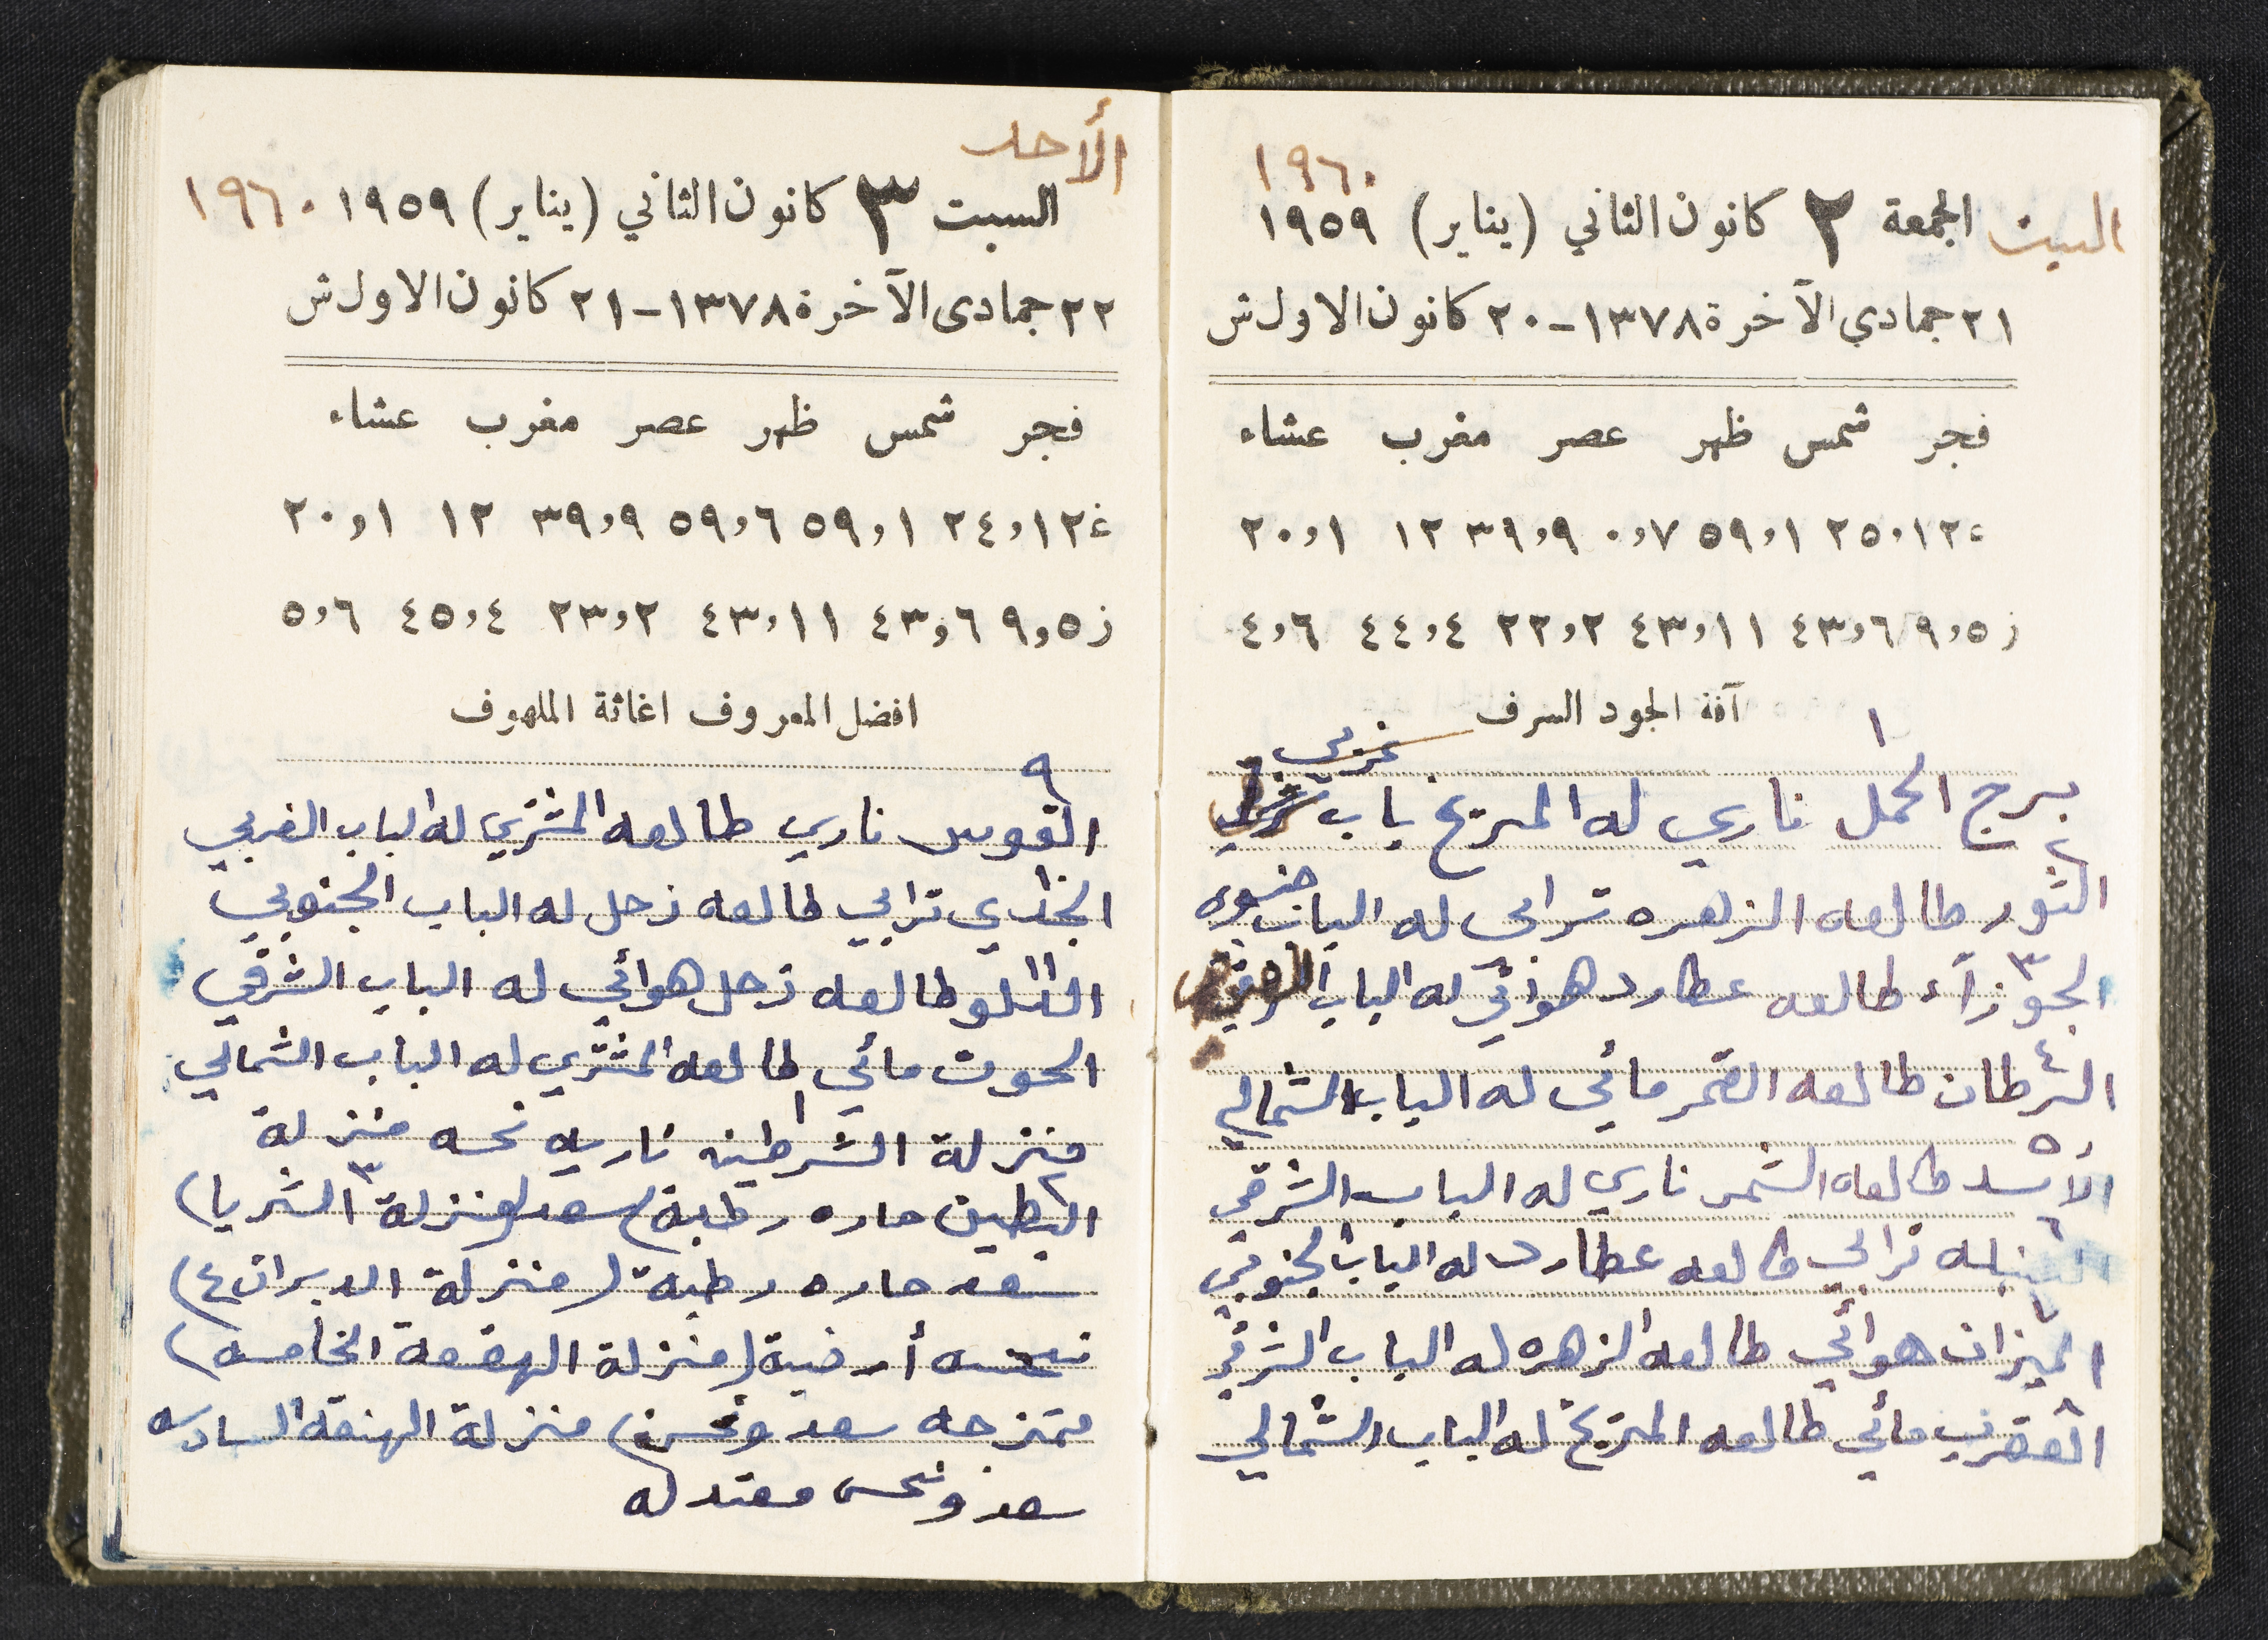 ١٩٦٠
السبت الجمعة ٢ كانون الثاني (يناير) ١٩٥٩
٢١ جمادي الآخرة ١٣٧٨ - ٢٠ كانون الاول ش
فجر شمس ظهر عصر مغرب عشاء
ع ١٢,٢٥ ١,٥٩ ٧,٠ ٩,٣٩ ١٢ ١,٢٠
ز ٥,٩ ٦,٤٣ ١١,٤٣ ٢,٢٢ ٤,٤٤ ٦,٤
آفة الجود السرف
١ غربي
برج الحمل ناري له المريخ باب
٢
الثور طالعه الزهره ترابي له الباب جنوبي
٣
الجوزآء طالعه عطارد هوائي له الباب
٤
السرطان طالعه القمر مائي له الباب الشمالي
٥
الأسد طالعه الشمس ناري له الباب الشرقي
٦
السنبله ترابي طالعه عطارد له الباب الجنوبي
٧
الميزان هوائي طالعه الزهره له الباب الشرقي
٨
العقرب مائي طالعه المريخ له الباب الشمالي
الأحد
السبت ٣ كانون الثاني (يناير) ١٩٥٩ ١٩٦٠
٢٢ جمادى الآخرة ١٣٧٨ - ٢١ كانون الاول ش
فجر شمس ظهر عصر مغرب عشاء
ع ١٢,٢٤ ١,٥٩ ٦,٥٩ ٩,٣٩ ١٢ ١,٢٠
ز ٥,٩ ٦,٤٣ ١١,٤٣ ٢,٢٣ ٤,٤٥ ٦,٥
افضل المعروف اغاثة الملهوف
٩
القوس ناري طالعه المشتري له الباب الغربي
الجدي ترابي طالعه زحل له الباب الجنوبي
الدلو طالعه زحل هوائي له الباب الشرقي
الحوت مائي طالعه المشتري له الباب الشمالي
منزلة الشرطين ١ ناريه نحسه منزلة
البطين ٢ حاره رطبة سعد (منزلة ٣ الثريا)
سعد حاره رطبة (منزلة الدبران ٤)
نحسه أرضية (منزلة الهقعة الخامسه)
ممتزجه سعد ونحس) منزلة الهنعه السادسه
سعد ونحس معتدله